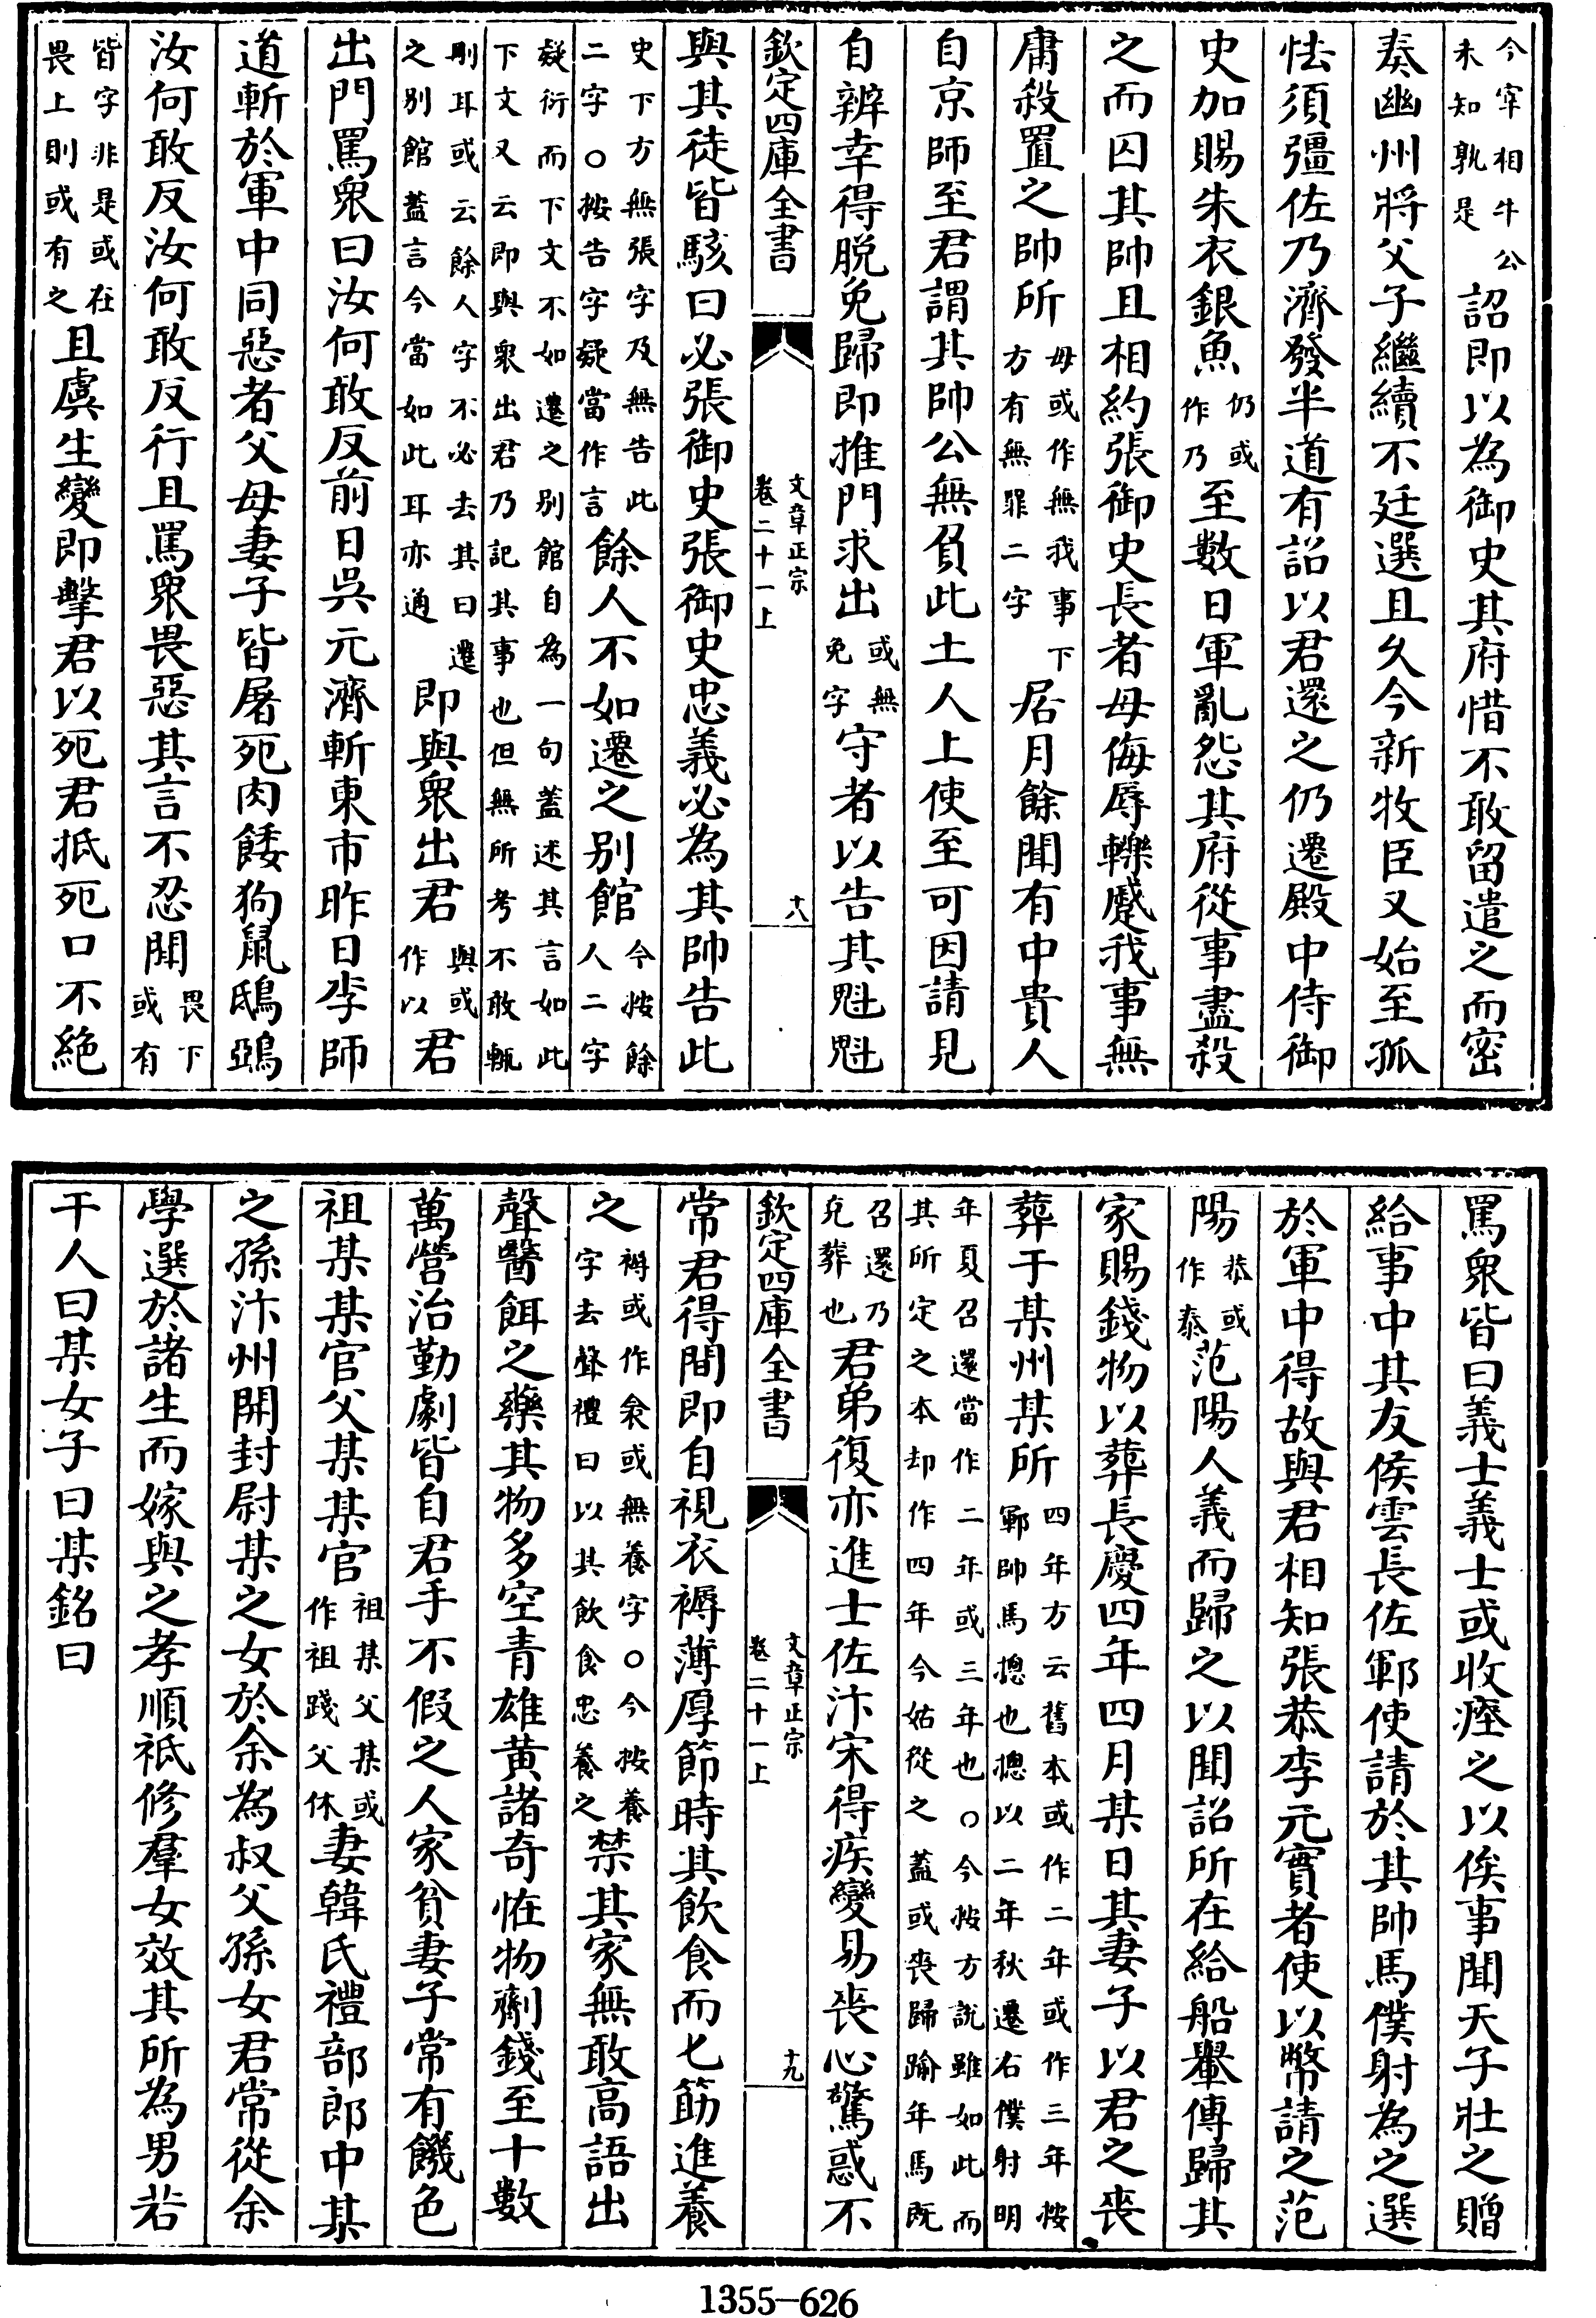 今宰相牛公未知孰是詔即以為御史其府惜不敢留遣之而密
奏幽州將父子繼續不廷選且久今新牧臣又始至孤
怯須彊佐乃濟發半道有詔以君還之仍遷殿中侍御
史加賜朱衣銀魚仍或作乃至數日軍亂怨其府從事盡殺
之而囚其帥且相約張御史長者毋侮辱轢蹙我事無
庸殺置之帥所毋或作無我事下方有無罪二字居月餘聞有中貴人
自京師至君謂其帥公無負此土人上使至可因請見
自辨幸得脫免歸即推門求出或無免字守者以告其魁魁
欽定四庫全書 文章正宗 卷二十一上 十八
與其徒皆駭曰必張御史張御史忠義必為其帥告此
史下方無張字及無告此二字〇按告字疑當作言餘人不如遷之別館今按餘人二字
疑衍而下文不如遷之別館自為一句蓋述其言如此下文又云即與衆出君乃記其事也但無所考不敢輒
刪耳或云餘人字不必去其曰遷之別館蓋言今當如此耳亦通即與衆出君與或作以君
出門罵衆曰汝何敢反前日吳元濟斬東市昨日李師
道斬於軍中同惡者父母妻子皆屠死肉餧狗鼠鴟鵶
汝何敢反汝何敢反行且罵衆畏惡其言不忍聞畏下或有
皆字非是或在畏上則或有之且虞生變即擊君以死君抵死口不絕
罵衆皆曰義士義士或收瘞之以俟事聞天子壯之贈
給事中其友侯雲長佐鄆使請於其帥馬僕射為之選
於軍中得故與君相知張恭李元實者使以幣請之范
陽恭或作泰范陽人義而歸之以聞詔所在給船轝傳歸其
家賜錢物以葬長慶四年四月某日其妻子以君之喪
葬于某州某所四年方云舊本或作二年或作三年按鄆帥馬摠也摠以二年秋遷右僕射明
年夏召還當作二年或三年也〇今按方說雖如此而其所定之本却作四年今姑從之蓋或喪歸踰年馬既
召還乃克葬也君弟復亦進士佐汴宋得疾變易喪心驚惑不
欽定四庫全書 文章正宗 卷二十一上 十九
常君得間即自視衣褥薄厚節時其飲食而匕筯進養
之褥或作衾或無養字〇今按養字去聲禮曰以其飲食忠養之禁其家無敢高語出
聲醫餌之藥其物多空青雄黃諸奇怪物劑錢至十數
萬營治勤劇皆自君手不假之人家貧妻子常有饑色
祖某某官父某某官祖某父某或作祖踐父休妻韓氏禮部郎中某
之孫汴州開封尉某之女於余為叔父孫女君常從余
學選於諸生而嫁與之孝順祗修羣女效其所為男若
干人曰某女子曰某銘曰
1355—626